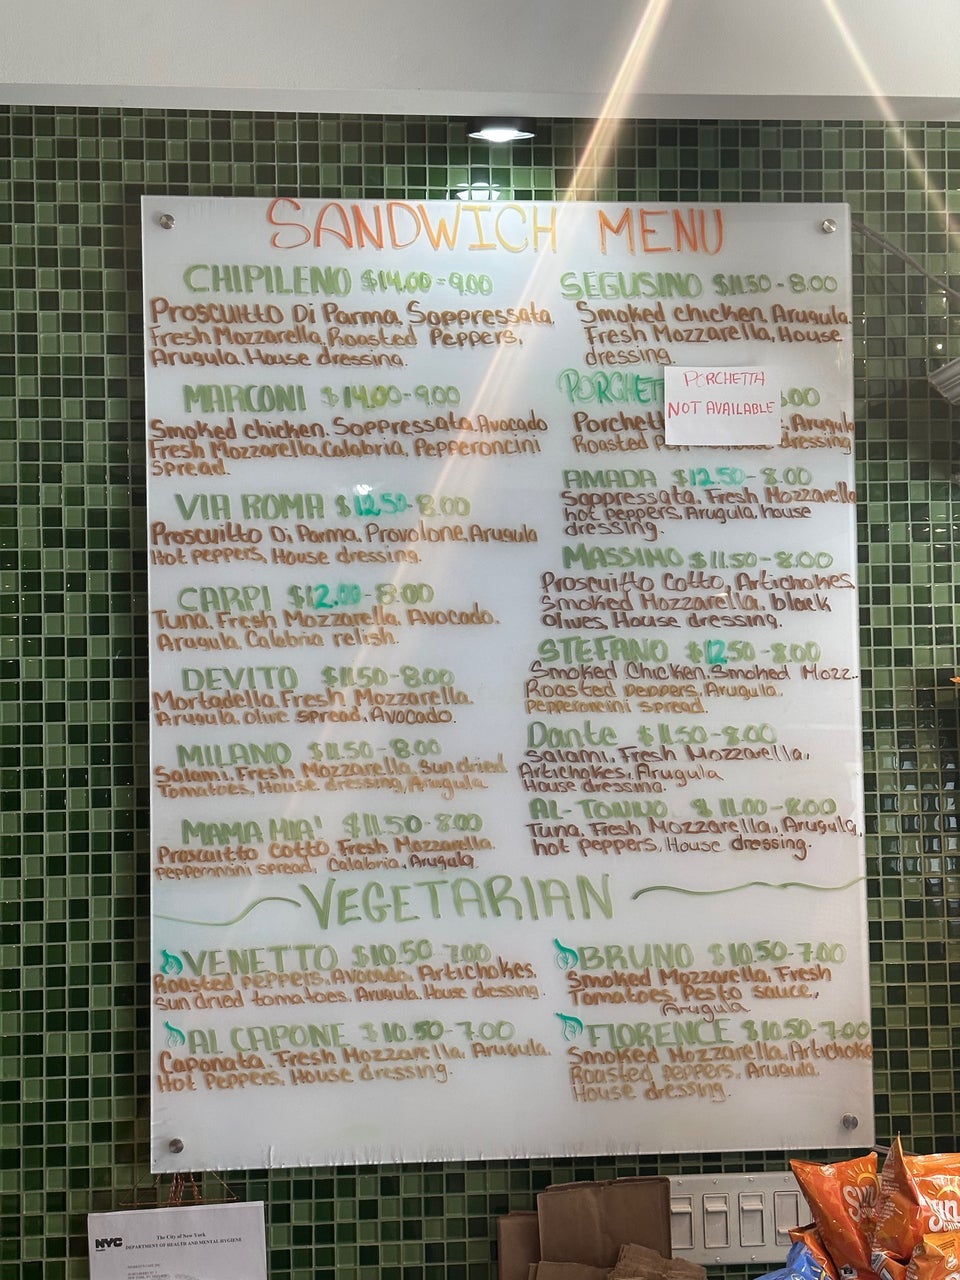 SANDWICH MENU
CHIPILENO $14.00-9.00
Proscuitto Di Parma, Soppressata,
Fresh Mozzarella, Roasted Peppers,
Arugula, House dressing.
MARCONI $14.00-9.00
Smoked chicken, Soppressata, Avocado
Fresh Mozzarella, Calabria, Pepperoncini
Spread.
VIA ROMA $12.50-8.00
Proscuitto Di Parma, Provolone, Arugula
Hot peppers, House dressing.
CARPI $12.00-8.00
Tuna, Fresh Mozzarella, Avocado,
Arugula, Calabria relish.
DEVITO $11.50-8.00
Mortadella, Fresh Mozzarella
Arugula, olive spread, Avocado.
MILANO $11.50-8.00
Salami, Fresh Mozzarella, Sun dried
Tomatoes, House dressing, Arugula
MAMA MIA! $11.50-8.00
Proscuitto Cotto, Fresh Mozzarella
pepperoncini spread, Calabria, Arugula
SEGUSINO $11.50-8.00
Smoked chicken, Arugula,
Fresh Mozzarella, House
dressing.
PORCHET .00
Porchett , Arugula
Roasted dressing
PORCHETTA
NOT AVAILABLE
AMADA $12.50-8.00
Soppressata, Fresh Mozzarella
hot peppers, Arugula, house
dressing.
MASSIMO $11.50-8.00
Proscuitto Cotto, Artichokes
Smoked Mozzarella, black
Olives, House dressing.
STEFANO $12.50-8.00
Smoked Chicken, Smoked Mozz..
Roasted peppers, Arugula,
Pepperoncini spread.
Dante $11.50-8.00
Salami, Fresh Mozzarella,
Artichokes, Arugula
House dressing.
AL-TONNO $11.00-8.00
Tuna, Fresh Mozzarella, Arugula,
hot peppers, House dressing.
VEGETARIAN
VENETTO $10.50 7.00
Roasted Peppers, Avocado, Artichokes,
sun dried tomatoes, Arugula, House dressing.
AL CAPONE $10.50-7.00
Caponata, Fresh Mozzarella, Arugula,
Hot Peppers, House dressing.
BRUNO $10.50-7.00
Smoked Mozzarella, Fresh
Tomatoes, Pesto sauce,
Arugula
FLORENCE $10.50-7.00
Smoked Mozzarella, Artichoke
Roasted peppers, Arugula,
House dressing.
NYC
The City of New York
DEPARTMENT OF HEALTH AND MENTAL HYGIENE
SUN